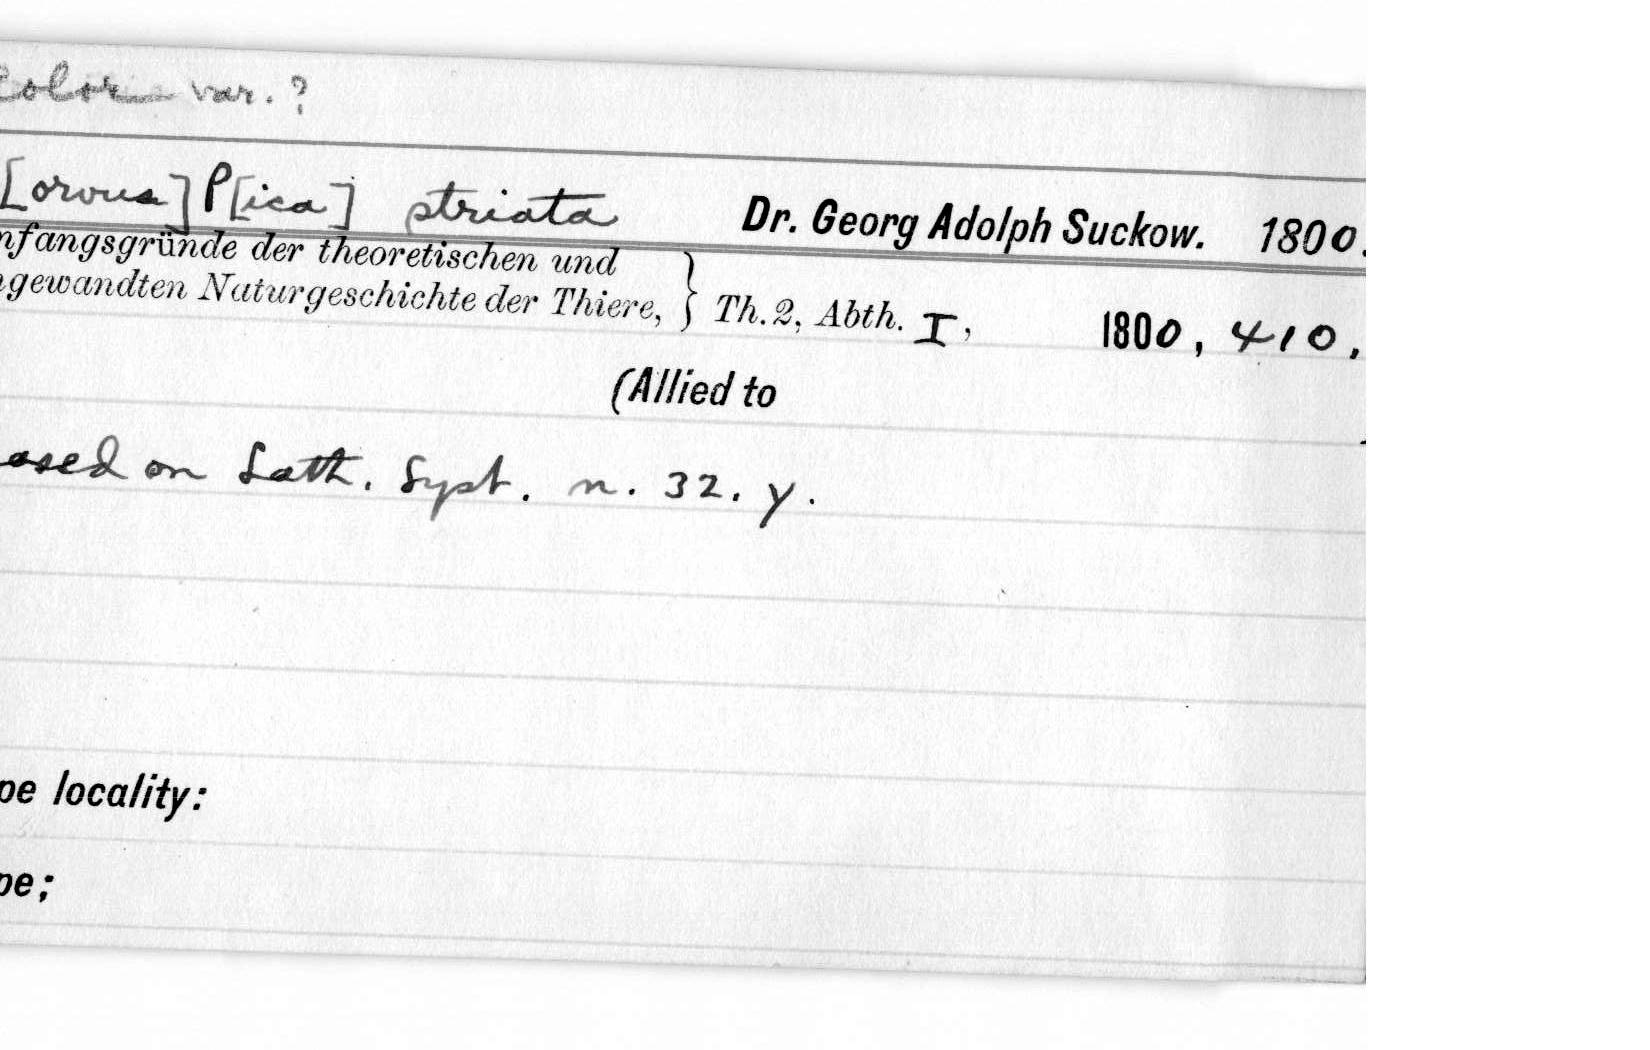 Color var. ?
[orvus] P[ica] striata Dr. Georg Adolph Suckow. 1800.
nfangsgründe der theoretischen und
gewandten Naturgeschichte der Thiere, } Th. 2, Abth. I, 1800, 410,
(Allied to
ased on Lath. Syst. n. 32. γ.
pe locality:
pe;